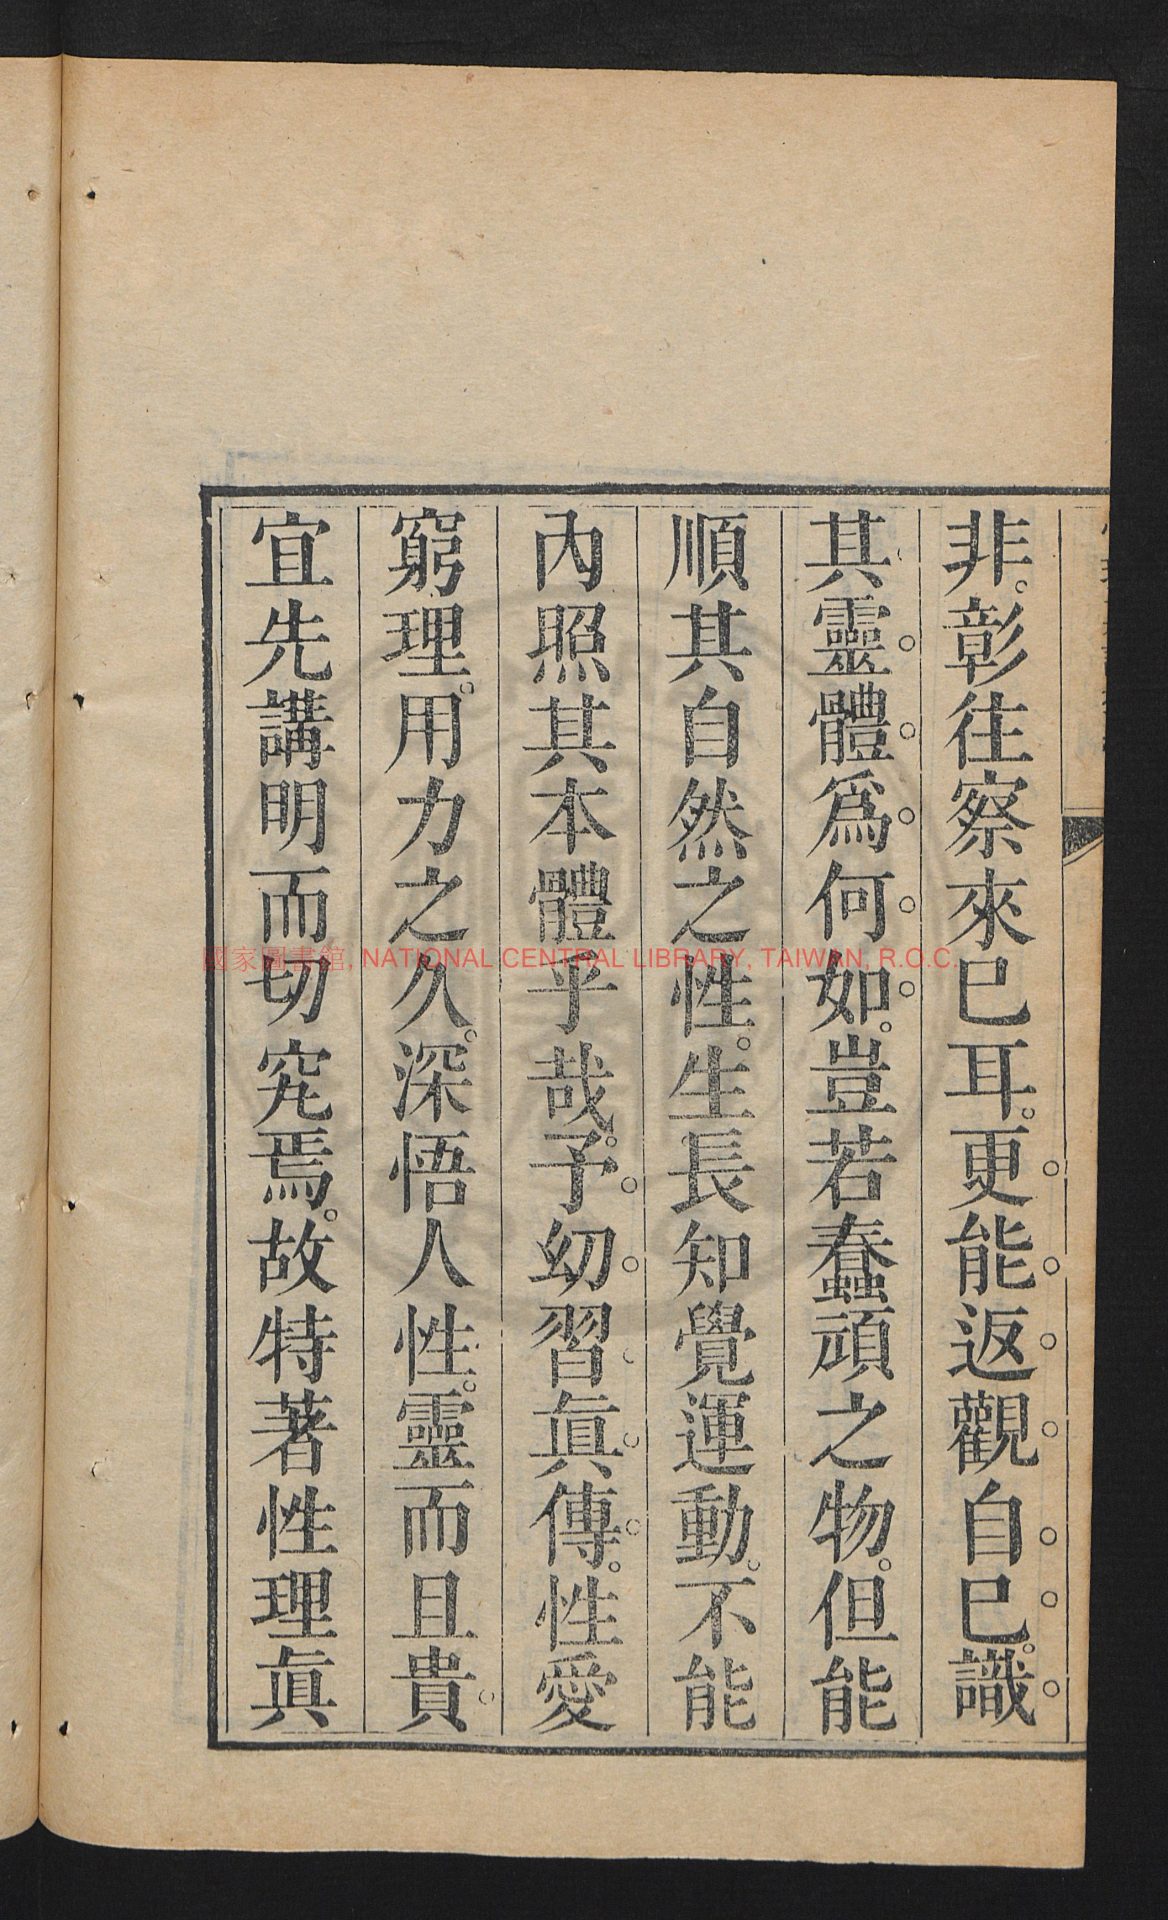 非。彰往察來巳耳。更能返觀自巳。識
其靈體爲何如。豈若蠢頑之物。但能
順其自然之性。生長知覺運動。不能
內照其本體乎哉。予幼習眞傳。性愛
窮理。用力之久。深悟人性。靈而且貴
宜先講明而切究焉。故特著性理眞
國家圖書館, NATIONAL CENTRAL LIBRARY, TAIWAN, R.O.C.